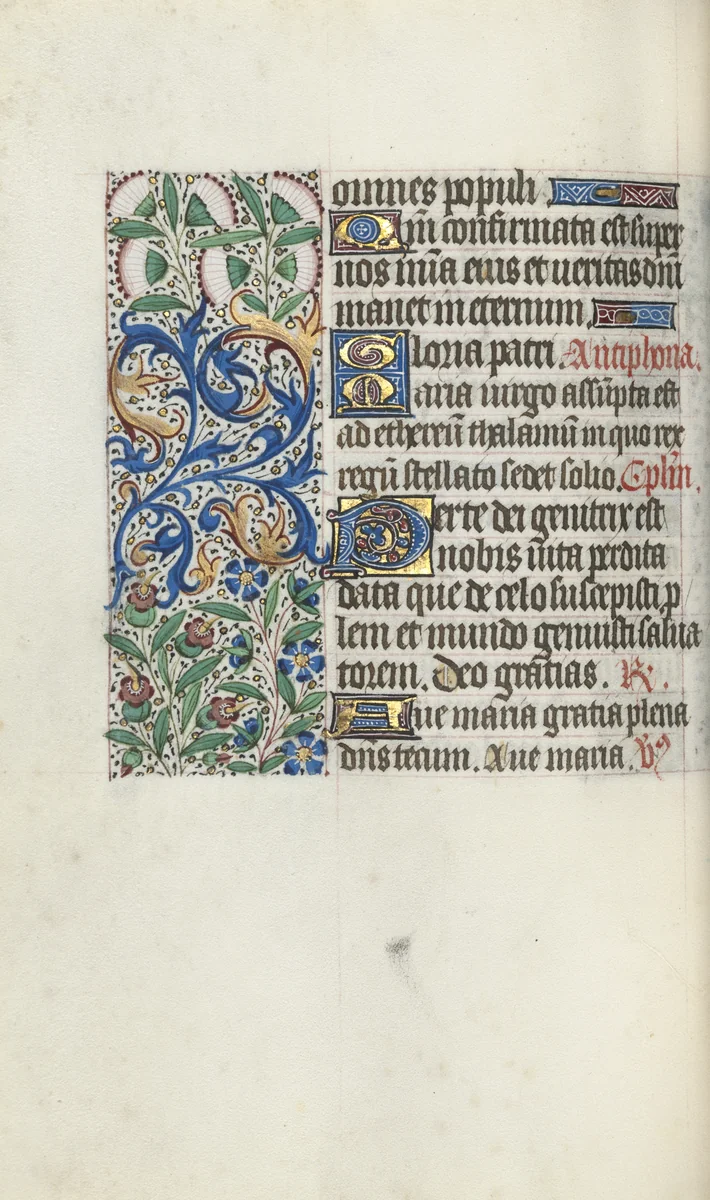 omnes populi
Qm̄ confirmata est super
nos mīa eius et ueritas dnī
manet in eternum.
Gloria patri. Antiphona.
Maria uirgo assūpta est
ad ethereū thalamū in quo rex
regū stellato sedet solio. Cplm̄.
Per te dei genitrix est
nobis uita perdita
data que de celo suscepisti p̄
lem et mundo genuisti salua
torem. Deo gratias. R.
Aue maria gratia plena
dn̄s tecum. Aue maria. V9